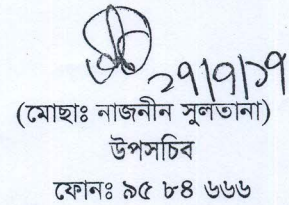 ২৭/৭/১৭
(মোছাঃ নাজনীন সুলতানা)
উপসচিব
ফোনঃ ৯৫ ৮৪ ৬৬৬